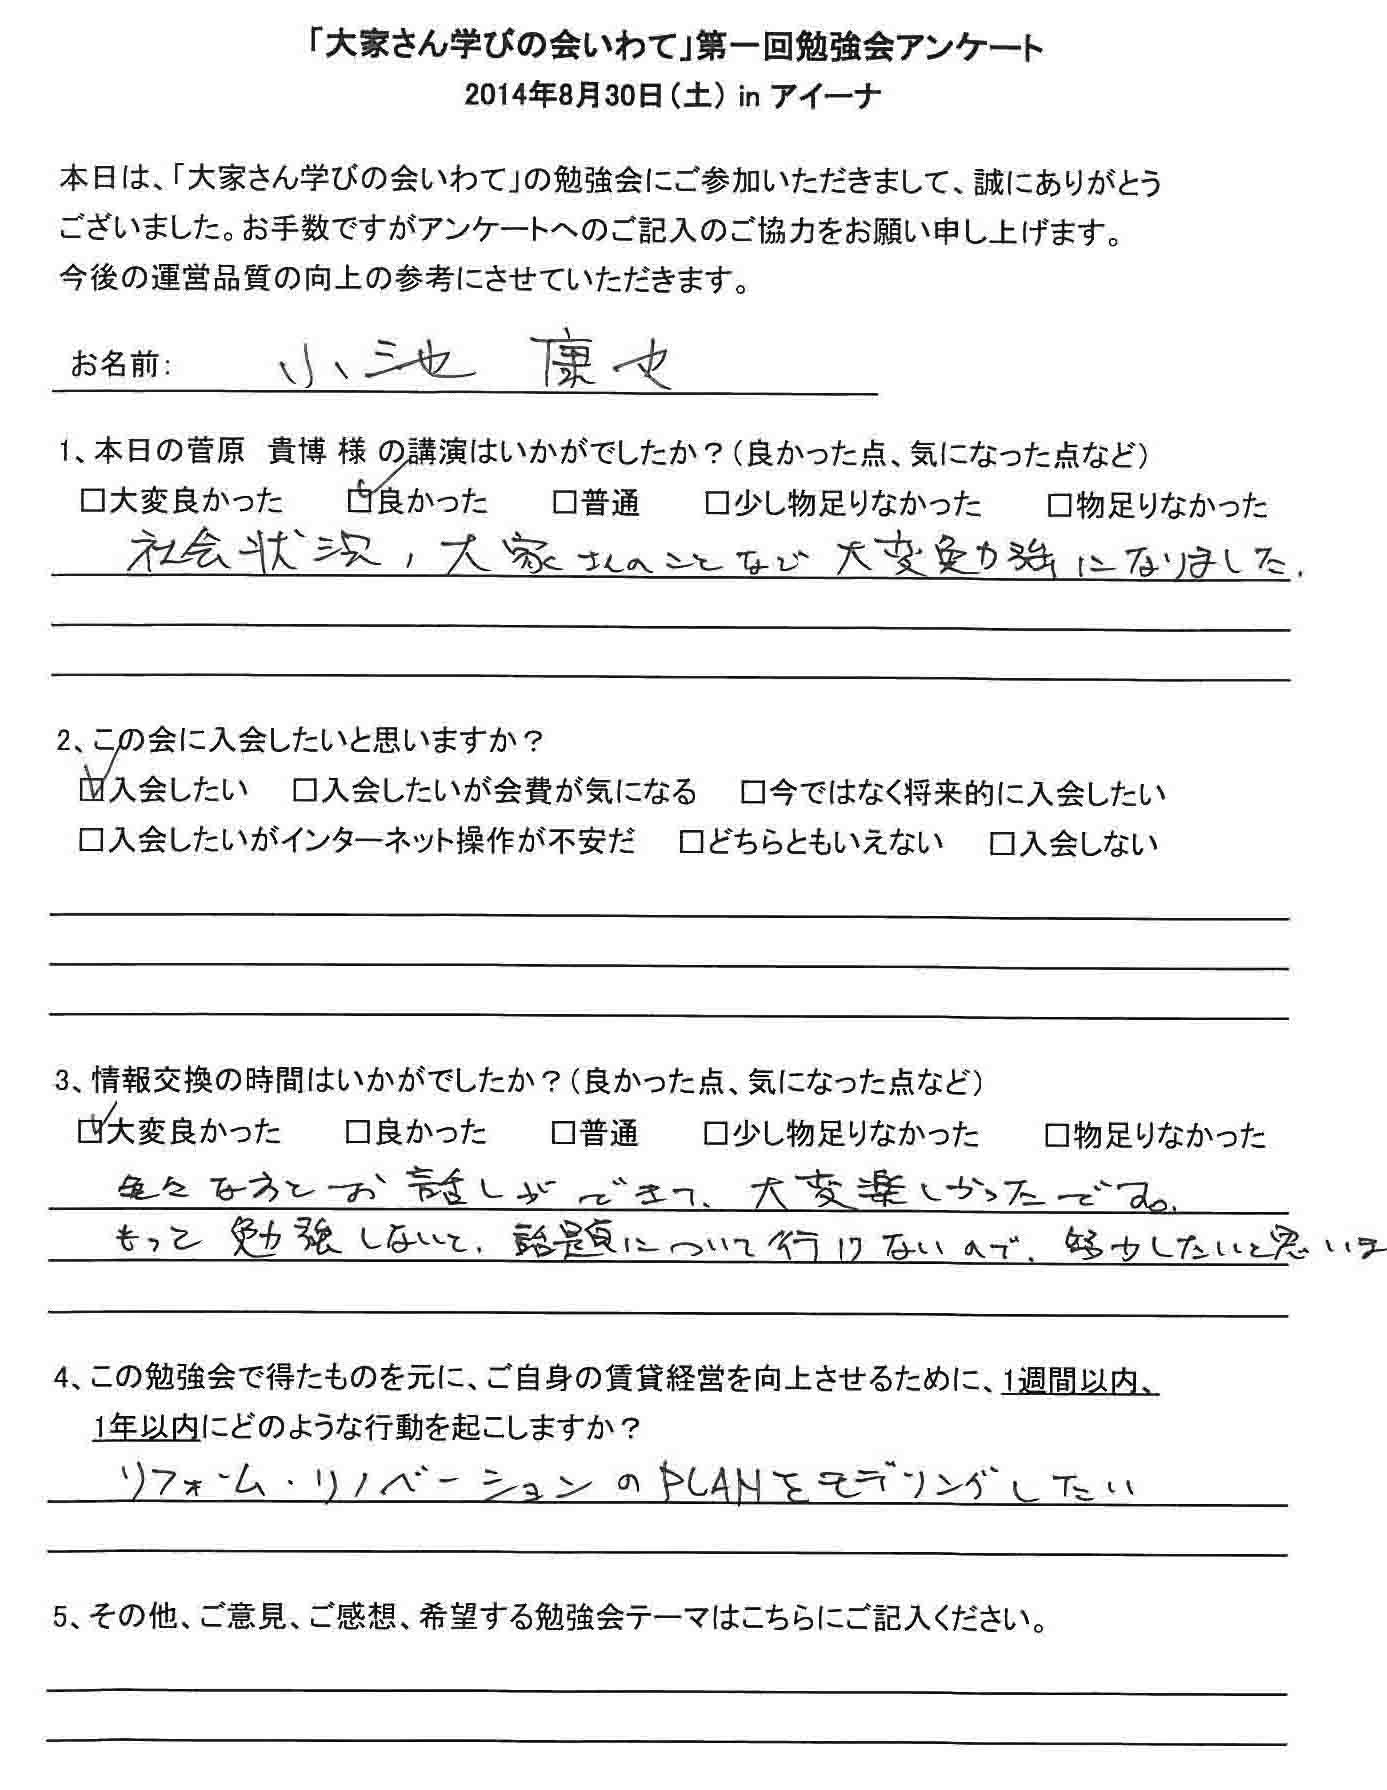 「大家さん学びの会いわて」第一回勉強会アンケート
2014年8月30日（土） in アイーナ
本日は、「大家さん学びの会いわて」の勉強会にご参加いただきまして、誠にありがとう
ございました。お手数ですがアンケートへのご記入のご協力をお願い申し上げます。
今後の運営品質の向上の参考にさせていただきます。
お名前： 小池 康也
1、本日の菅原 貴博 様 の講演はいかがでしたか？（良かった点、気になった点など）
☐大変良かった ☑良かった ☐普通 ☐少し物足りなかった ☐物足りなかった
社会状況，大家さんのことなど大変勉強になりました．
2、この会に入会したいと思いますか？
☑入会したい ☐入会したいが会費が気になる ☐今ではなく将来的に入会したい
☐入会したいがインターネット操作が不安だ ☐どちらともいえない ☐入会しない
3、情報交換の時間はいかがでしたか？（良かった点、気になった点など）
☑大変良かった ☐良かった ☐普通 ☐少し物足りなかった ☐物足りなかった
色々な方とお話しができて、大変楽しかったです。
もっと勉強しないと、話題について行けないので、努力したいと思いま
4、この勉強会で得たものを元に、ご自身の賃貸経営を向上させるために、1週間以内、
1年以内にどのような行動を起こしますか？
リフォーム・リノベーションのPLANをモデリングしたい
5、その他、ご意見、ご感想、希望する勉強会テーマはこちらにご記入ください。